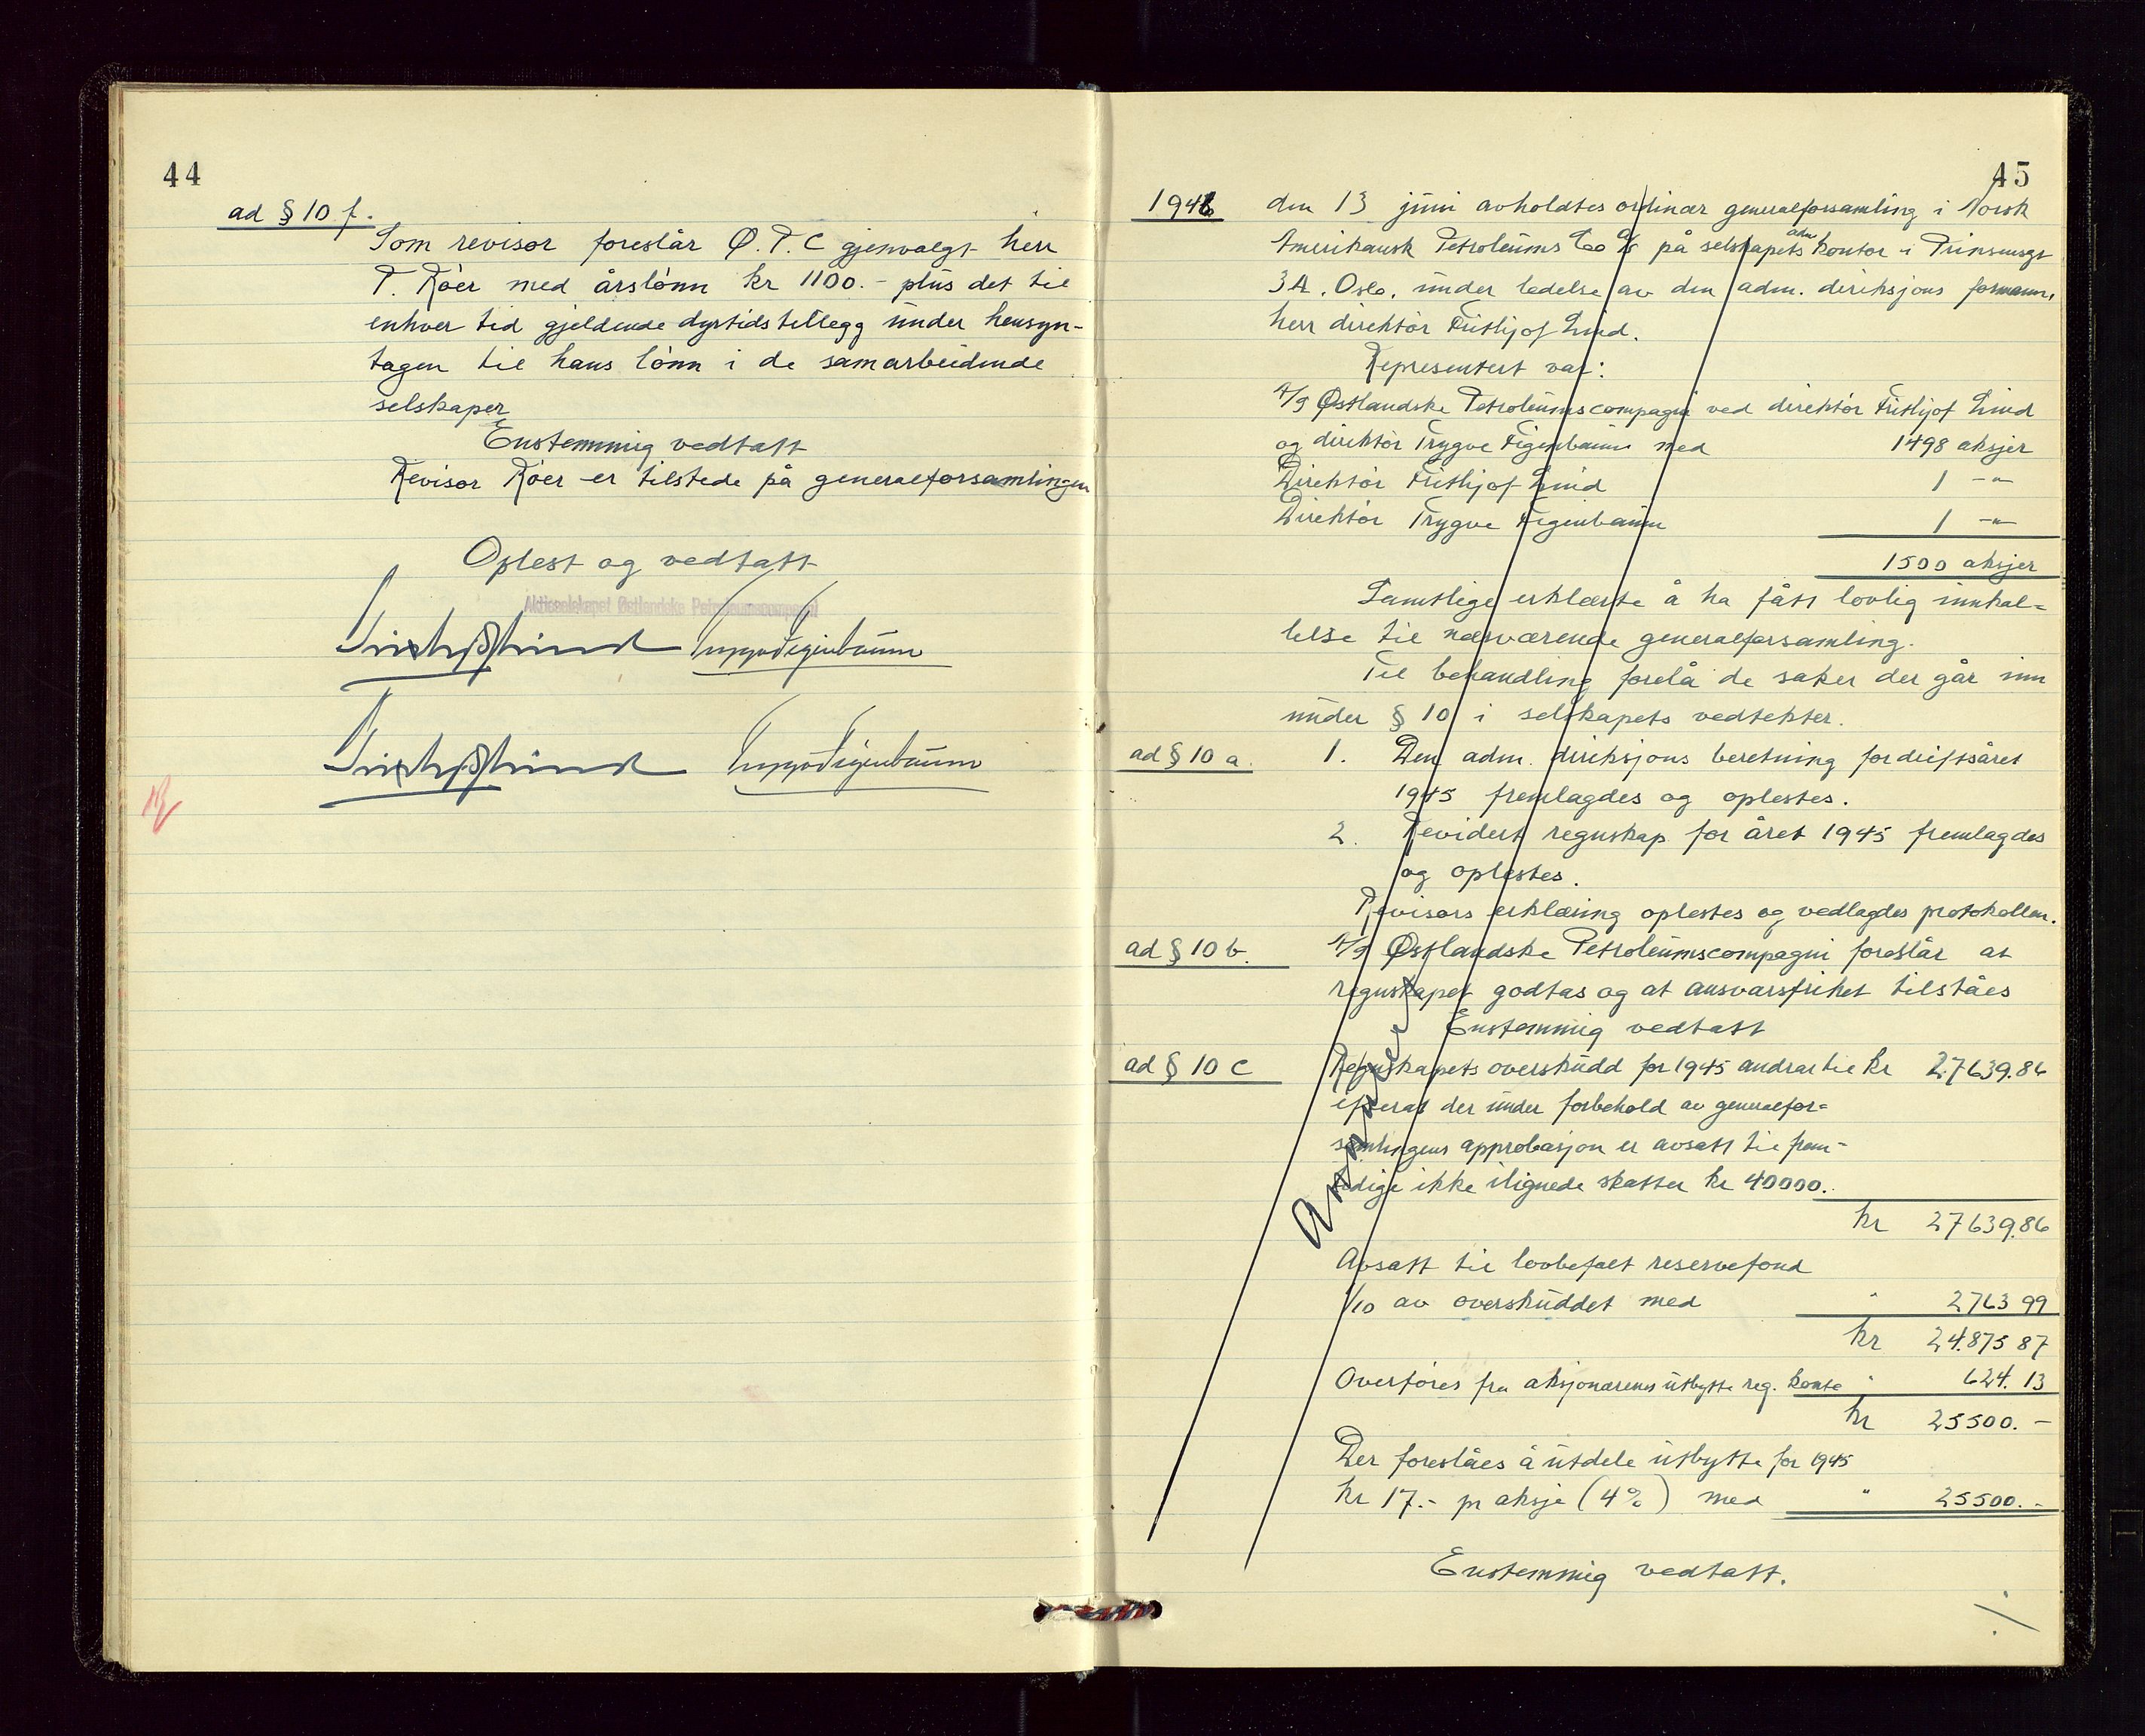 44
ad § 10 f.
Som revisor foreslår Ø.P.C gjenvalgt herr
T. Röer med årslönn kr 1100.- plus det til
enhver tid gjeldende dyrtidstillegg under hensyn-
tagen til hans lönn i de samarbeidende
selskaper
Enstemmig vedtatt
Revisor Röer er tilstede på generalforsamlingen
Oplest og vedtatt
Aktieselskapet Østlandske Petroleumscompagni
45
1946 den 13 juni avholdtes ordinær generalforsamling i Norsk
Amerikansk Petroleums Co A/S på selskapets adm kontor i Prinsensgt
3A. Oslo. under ledelse av den adm. direksjons formann,
herr direktör Frithjof Lind.
Representert var:
A/S Østlandske Petroleumscompagni ved direktör Frithjof Lind
og direktör Trygve Figenbaum med 1498 aksjer
Direktör Frithjof Lind 1 -"-
Direktör Trygve Figenbaum 1 -"-
1500 aksjer
Samtlige erklærte å ha fått lovlig innkal=
lelse til nærværende generalforsamling.
Til behandling forelå de saker der går inn
under § 10 i selskapets vedtekter.
ad § 10 a. 1. Den adm. direksjons beretning for driftsåret
1945 fremlagdes og oplestes.
2. Revidert regnskap for året 1945 fremlagdes
og oplestes.
Revisors erklæring oplestes og vedlagdes protokollen.
ad § 10 b. A/S Østlandske Petroleumscompagni foreslår at
regnskapet godtas og at ansvarsfrihet tilståes
Enstemmig vedtatt
ad § 10 c Regnskapets overskudd for 1945 andrar til kr 27639.86
efterat der under forbehold av generalfor=
samlingens approbasjon er avsatt til frem-
tidige ikke ilignede skatter kr 40000.
kr 27639.86
Avsatt til lovbefalt reservefond
1/10 av overskuddet med " 2763 99
kr 24.875 87
Overföres fra aksjonærenes utbytte reg. konto " 624.13
kr 25500.-
Der foreslåes å utdele utbytte for 1945
kr 17.- pr aksje (4%) med " 25500.-
Enstemmig vedtatt.
./.